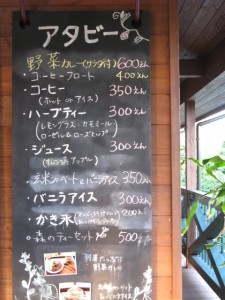 アタビー
野菜カレー(サラダ付)600えん
・コーヒーフロート 400えん
・コーヒー 350えん
(ホット or アイス)
・ハーブティー 300えん
(レモングラス・カモミール
ローゼル&ローズヒップ)
・ジュース 300えん
(オレンジ アップル)
・玄米シャーベット&バニラアイス 350えん
・バニラアイス 300えん
・かき氷 200えん
・森のティーセット 500えん